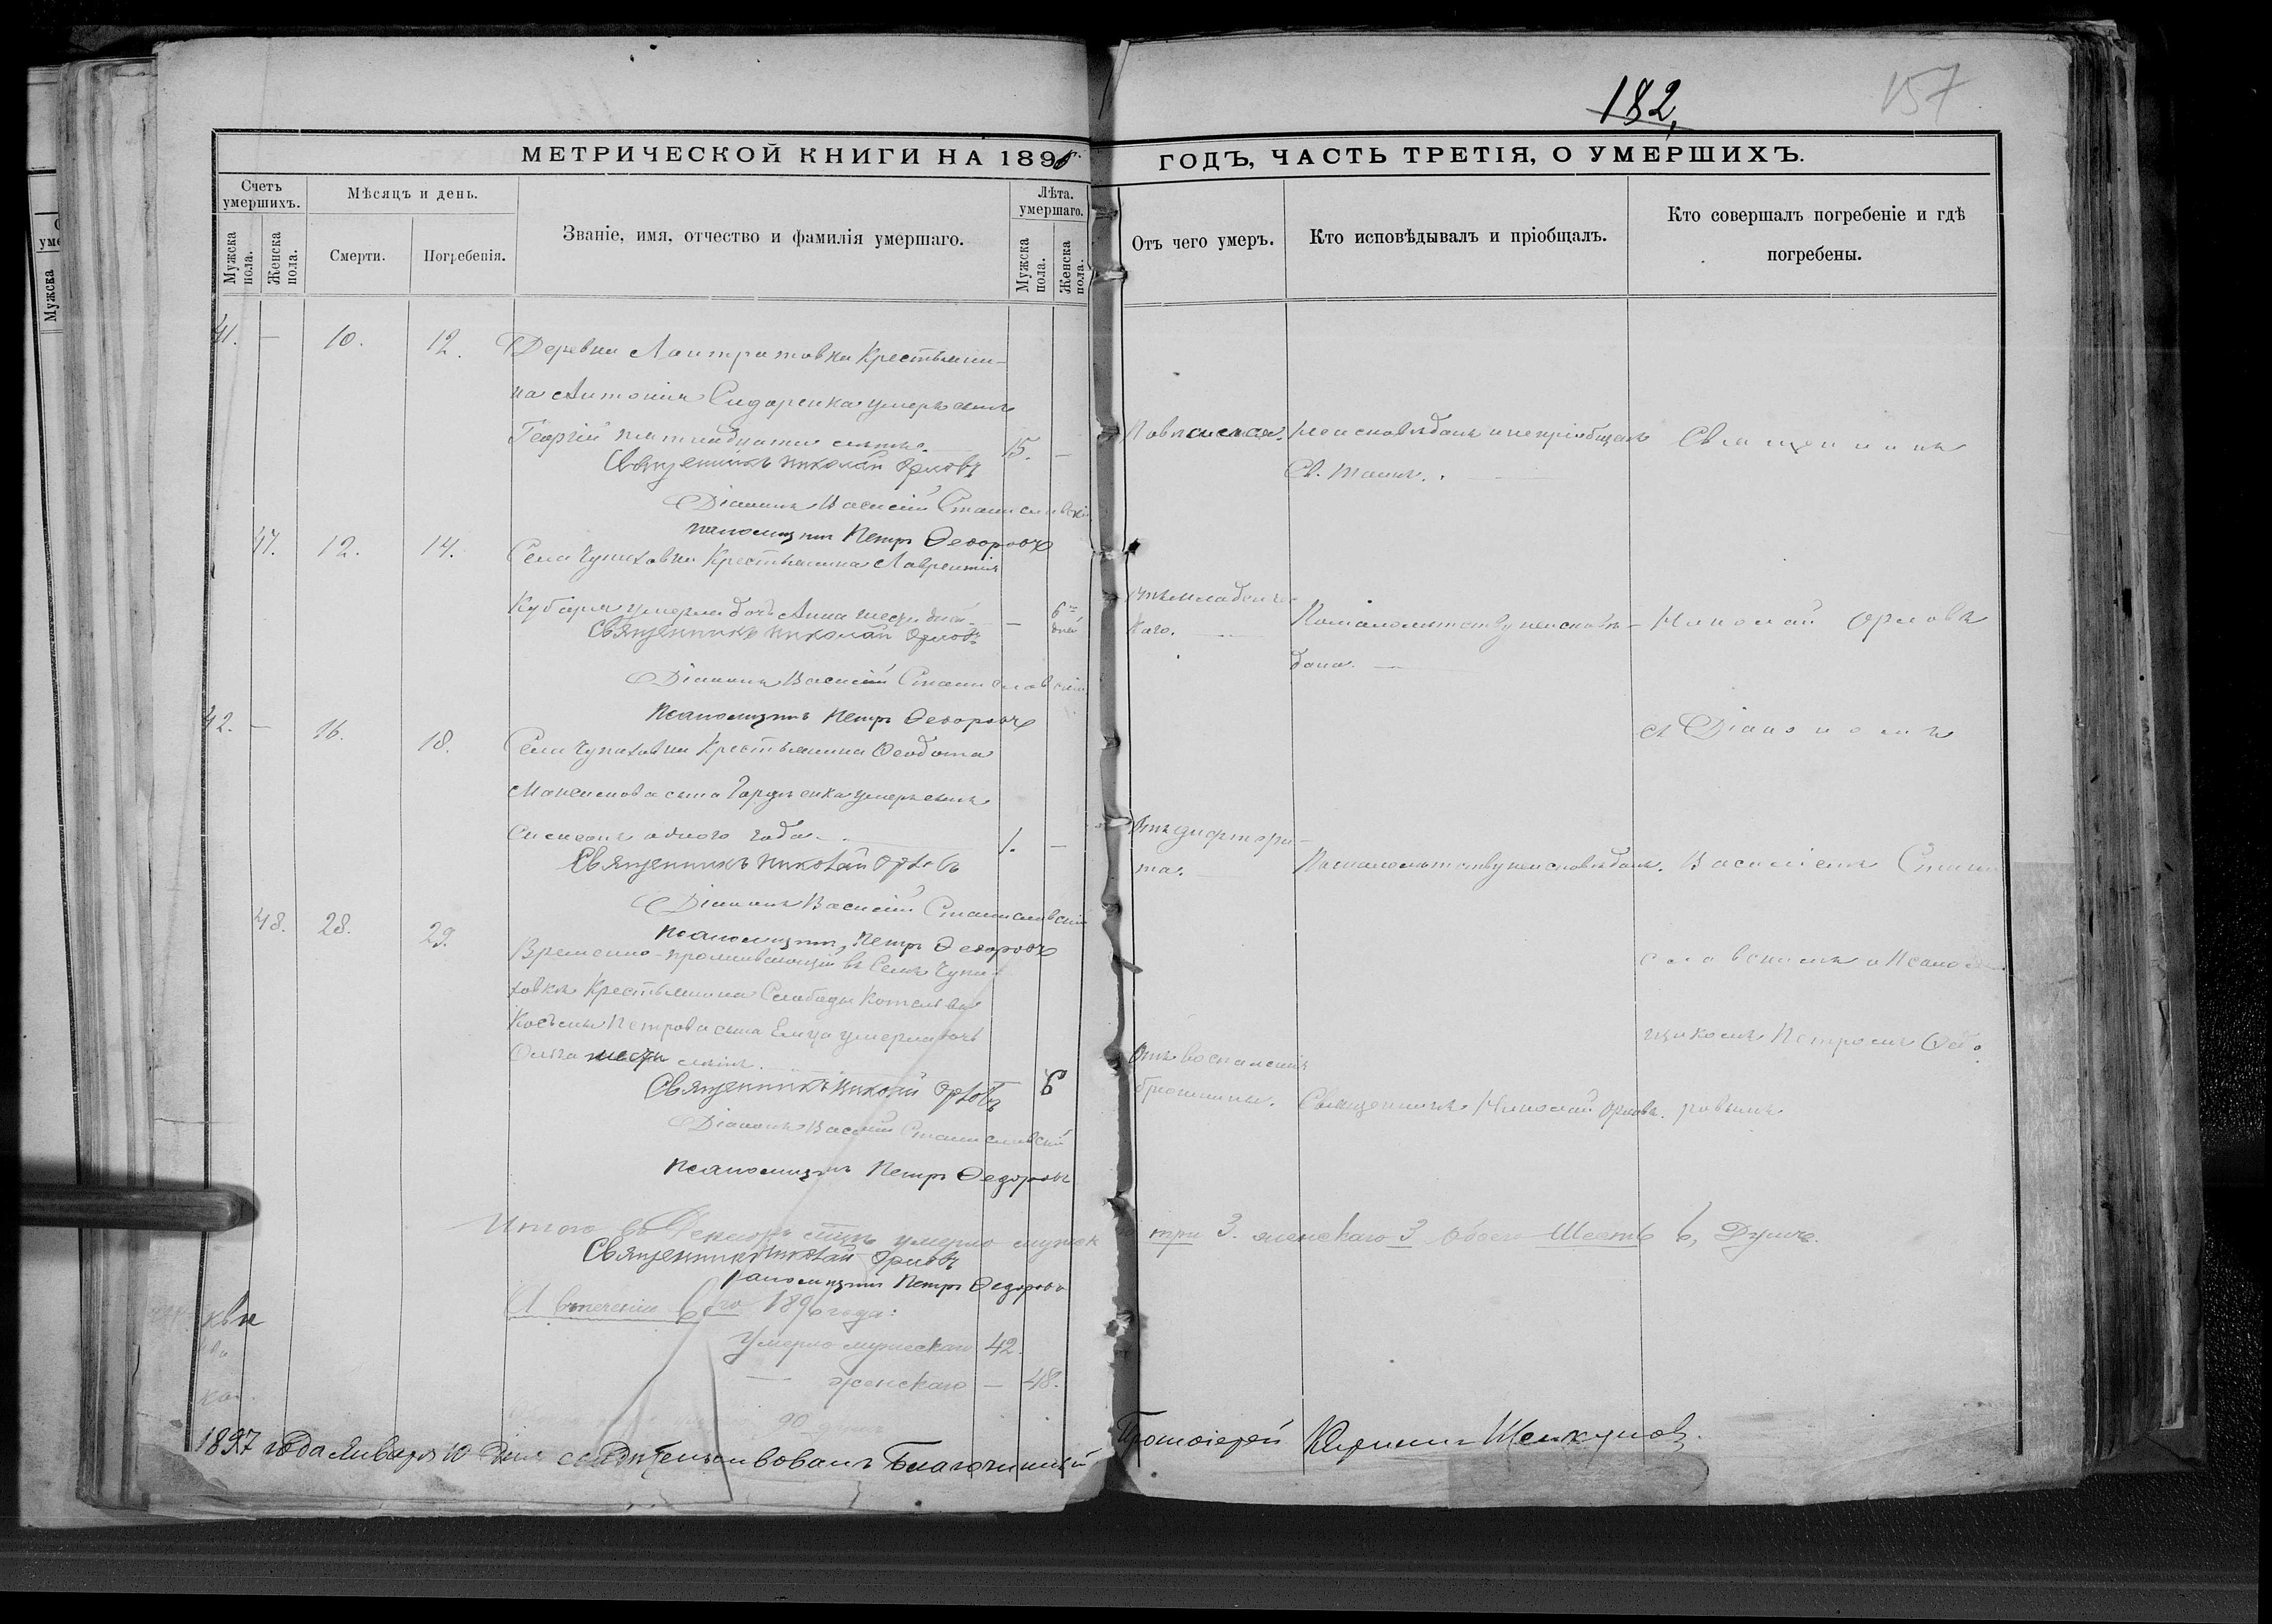 182,
157
МЕТРИЧЕСКОЙ КНИГИ НА 1896
ГОДЪ, ЧАСТЬ ТРЕТІЯ, О УМЕРШИХЪ.
Счетъ умершихъ.
Мѣсяцъ и день.
Званіе, имя, отчество и фамилія умершаго.
Лѣта. умершаго.
Отъ чего умеръ.
Кто исповѣдывалъ и пріобщалъ.
Кто совершалъ погребеніе и гдѣ
погребены.
Мужска пола.
Женска пола.
Смерти.
Погребенія.
Мужска пола.
Женска пола.
41. — 10. 12. Деревни Крестьяни-
на Антонія Сидоренка умеръ сынъ
Георгій пятнадцати лѣтъ. 15. —
неисповѣданъ и непріобщенъ
Св. Таинъ.
Священникъ
Священникъ Николай Орловъ
Діаконъ Василій Станиславскій
псаломщикъ Петръ Ѳедоровъ
47. 12. 14. Села Чупаховки Крестьянина Лаврентія
умерла дочь Анна шести дней — 6 дней
Отъ младенчес
каго.
По малолѣтству неисповѣ-
дана.
Николай Орловъ
Священникъ Николай Орловъ
Діаконъ Василій Станиславскій
Псаломщикъ Петръ Ѳедоровъ
42. — 16. 18. Села Чупаховки Крестьянина Ѳеодота
съ Діакономъ
сына умеръ сынъ
одного года. 1. —
Отъ дифтери-
та.
По малолѣтству неисповѣданъ.
Василіемъ Стани
Священникъ Николай Орловъ
Діаконъ Василій Станиславскій
Псаломщикъ Петръ Ѳедоровъ
48. 28. 29. Временно-проживающій въ Селѣ Чупа-
славскимъ и Псалом
ховкѣ Крестьянина Слободы Котельвы
Косьмы Петрова сына умерла дочь
щикомъ Петромъ Ѳедо
Ольга шести лѣтъ. 6
Отъ воспаленія
брюшины.
Священникъ Николай Орловъ.
ровымъ
Священникъ Николай Орловъ
Діаконъ Василій Станиславскій
Псаломщикъ Петръ Ѳедоровъ
Итого въ Декабрѣ умерло мужск
три 3. женскаго 3 обоего Шесть 6, Душъ.
Священникъ Николай Орловъ
Петръ Ѳедоровъ
А втеченіи 1896 года:
Умерло мужескаго 42.
— женскаго — 48.
90
1897 года Января 10 дня свидѣтельствовалъ Благочинный
Протоіерей